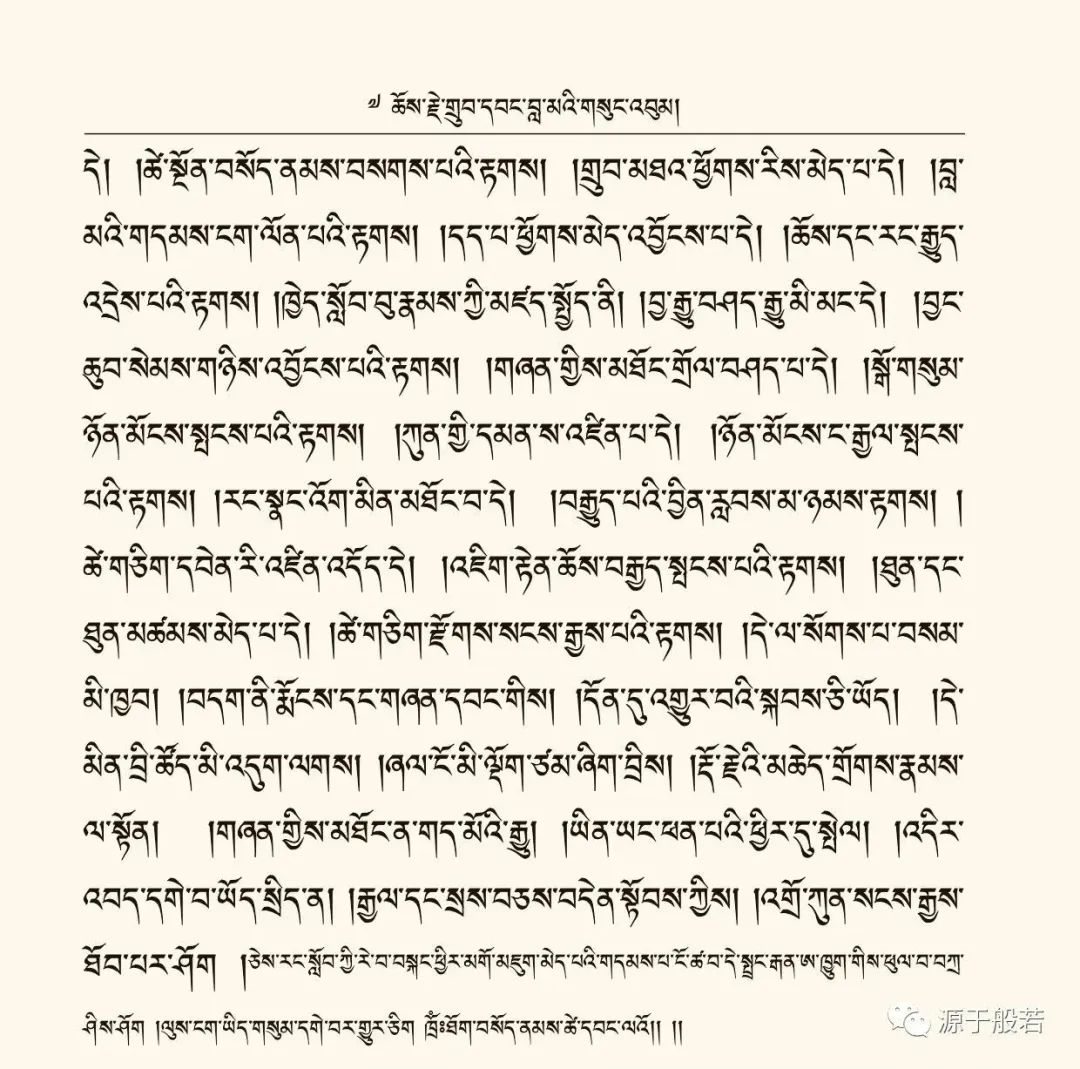 ༧ ཆོས་རྗེ་གྲུབ་དབང་བླ་མའི་གསུང་འབུམ།
དེ། །ཚེ་སྔོན་བསོད་ནམས་བསགས་པའི་རྟགས། །གྲུབ་མཐའ་ཕྱོགས་རིས་མེད་པ་དེ། །བླ་
མའི་གདམས་ངག་ལོན་པའི་རྟགས། །དད་པ་ཕྱོགས་མེད་འབྱོངས་པ་དེ། །ཆོས་དང་རང་རྒྱུད་
འདྲེས་པའི་རྟགས། །ཁྱེད་སློབ་བུ་རྣམས་ཀྱི་མཛད་སྤྱོད་ནི། །བྱ་རྒྱུ་བཤད་རྒྱུ་མི་མང་དེ། །བྱང་
ཆུབ་སེམས་གཉིས་འབྱོངས་པའི་རྟགས། །གཞན་གྱིས་མཐོང་གྲོལ་བཤད་པ་དེ། །སྒོ་གསུམ་
ཉོན་མོངས་སྤངས་པའི་རྟགས། །ཀུན་གྱི་དམན་ས་འཛིན་པ་དེ། །ཉོན་མོངས་ང་རྒྱལ་སྤངས་
པའི་རྟགས། །རང་སྣང་འོག་མིན་མཐོང་བ་དེ། །བརྒྱུད་པའི་བྱིན་རླབས་མ་ཉམས་རྟགས། །
ཚེ་གཅིག་དབེན་རི་འཛིན་འདོད་དེ། །འཇིག་རྟེན་ཆོས་བརྒྱད་སྤངས་པའི་རྟགས། །ཐུན་དང་
ཐུན་མཚམས་མེད་པ་དེ། །ཚེ་གཅིག་རྫོགས་སངས་རྒྱས་པའི་རྟགས། །དེ་ལ་སོགས་པ་བསམ་
མི་ཁྱབ། །བདག་ནི་རྨོངས་དང་གཞན་དབང་གིས། །དོན་དུ་འགྱུར་བའི་སྐབས་ཅི་ཡོད། །དེ་
མིན་བྲི་ཚོད་མི་འདུག་ལགས། །ཞལ་ངོ་མི་ལྡོག་ཙམ་ཞིག་བྲིས། །རྡོ་རྗེའི་མཆེད་གྲོགས་རྣམས་
ལ་སྟོན། །གཞན་གྱིས་མཐོང་ན་གད་མོའི་རྒྱུ། །ཡིན་ཡང་ཕན་པའི་ཕྱིར་དུ་སྤེལ། །འདིར་
འབད་དགེ་བ་ཡོད་སྲིད་ན། །རྒྱལ་དང་སྲས་བཅས་བདེན་སྟོབས་ཀྱིས། །འགྲོ་ཀུན་སངས་རྒྱས་
ཐོབ་པར་ཤོག །ཅེས་རང་སློབ་ཀྱི་རེ་བ་བསྐང་ཕྱིར་མགོ་མཇུག་མེད་པའི་གདམས་པ་ངོ་ཚ་བ་དེ་སྤྲང་རྒན་ཨ་ཁྱུག་གིས་ཕུལ་བ་བཀྲ་
ཤིས་ཤོག །ལུས་ངག་ཡིད་གསུམ་དགེ་བར་གྱུར་ཅིག ཐོག་བསོད་ནམས་ཚེ་དབང་ལའོ།། །།
源于般若